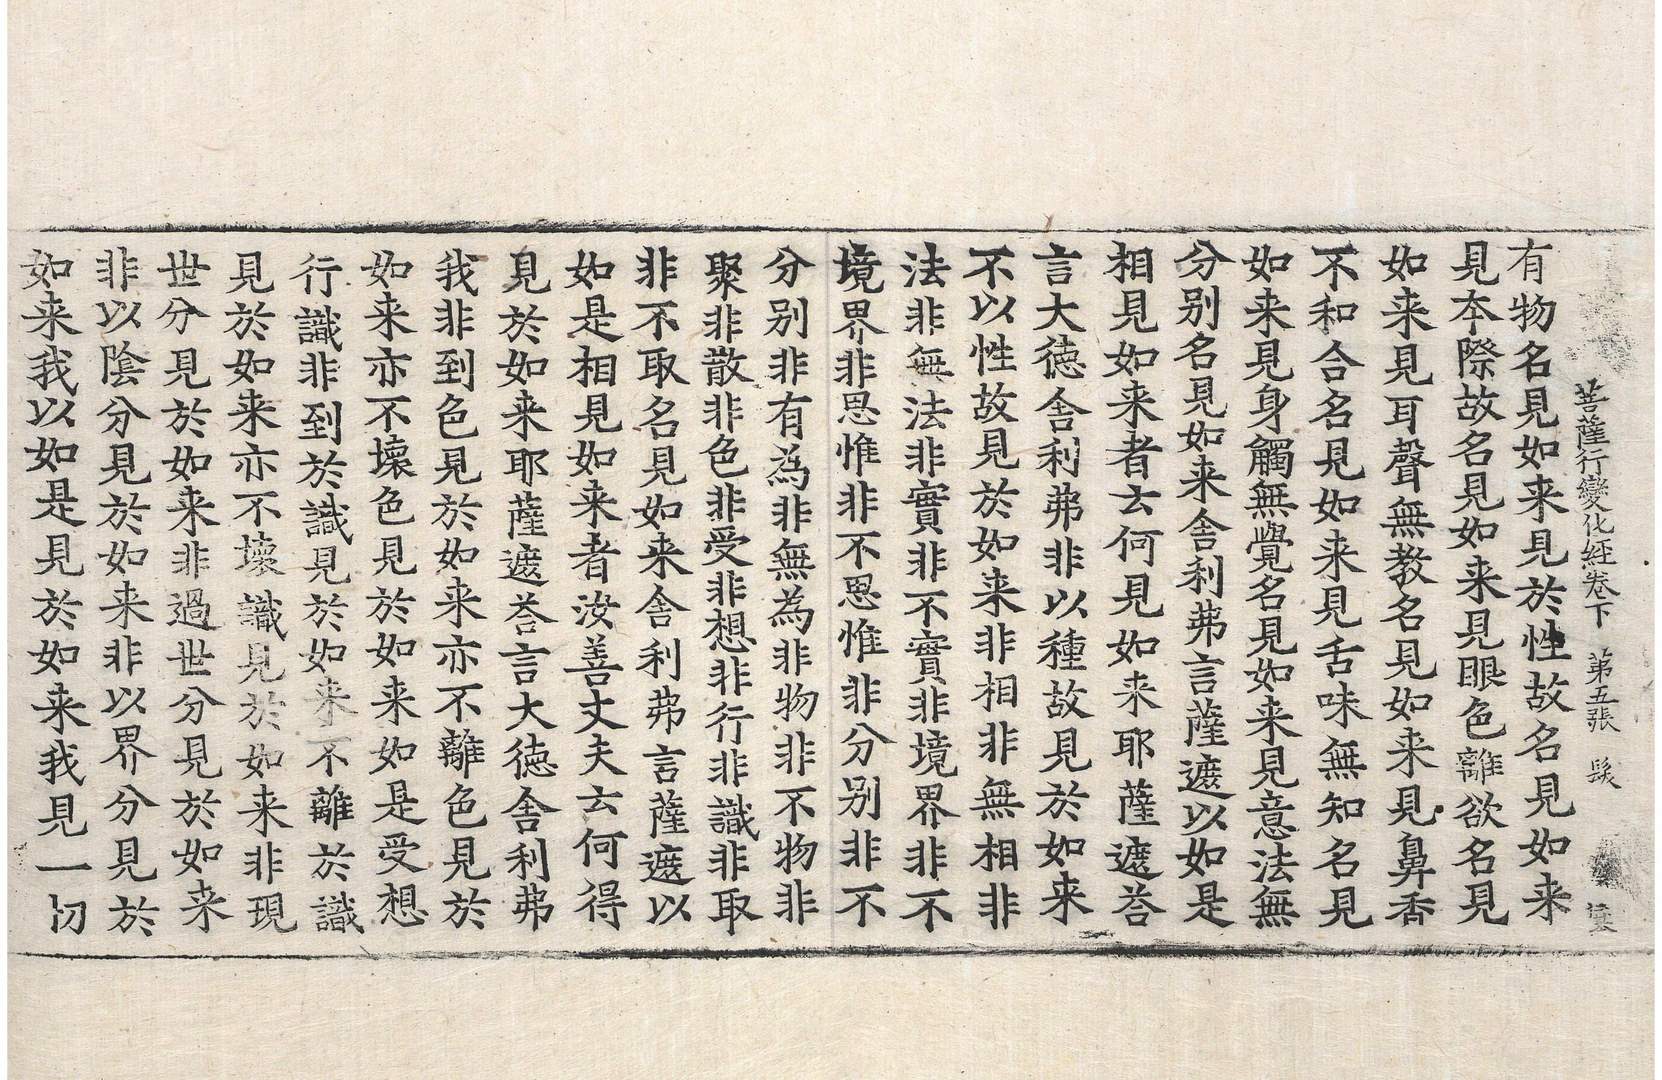 菩薩行變化經卷下 第五張 髮
有物名見如来見於性故名見如来
見本際故名見如来見眼色離欲名見
如来見耳聲無教名見如来見鼻香
不和合名見如来見舌味無知名見
如来見身觸無覺名見如来見意法無
分别名見如来舍利弗言薩遮以如是
相見如来者云何見如来耶薩遮荅
言大徳舍利弗非以種故見於如来
不以性故見於如来非相非無相非
法非無法非實非不實非境界非不
境界非思惟非不思惟非分别非不
分别非有為非無為非物非不物非
聚非散非色非受非想非行非識非取
非不取名見如来舍利弗言薩遮以
如是相見如来者汝善丈夫云何得
見於如来耶薩遮荅言大徳舍利弗
我非到色見於如来亦不離色見於
如来亦不壞色見於如来如是受想
行識非到於識見於如来不離於識
見於如来亦不壞識見於如来非現
世分見於如来非過世分見於如来
非以陰分見於如来非以界分見於
如来我以如是見於如来我見一切